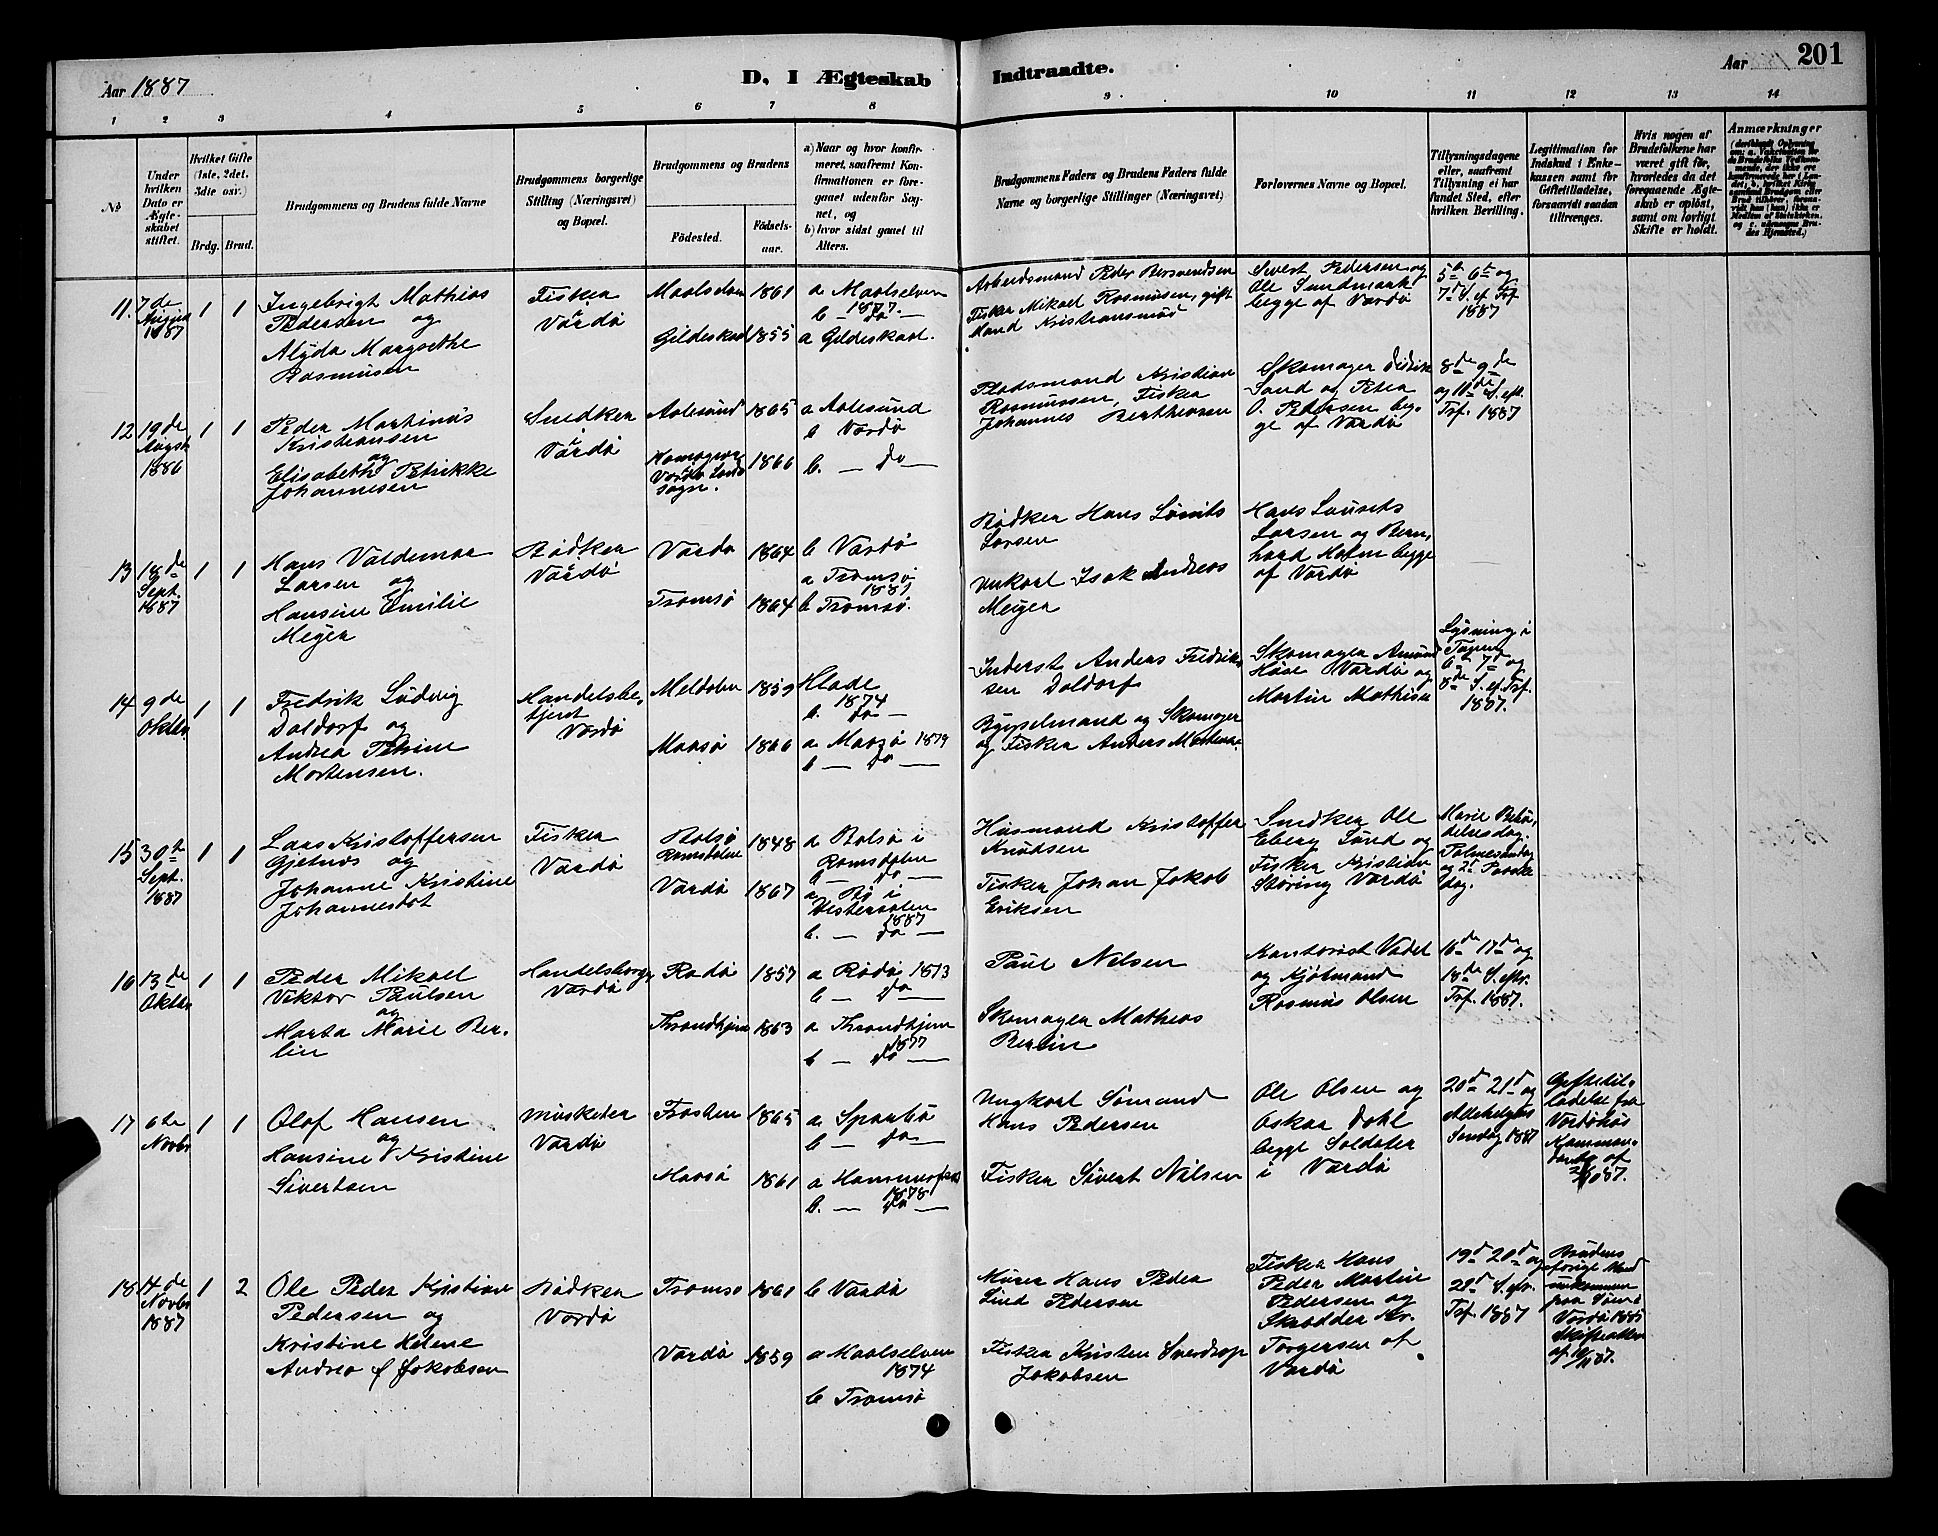 Aar 1887
D. I Ægteskab Indtraadte.
Aar 201
1 2 3 4 5 6 7 8 9 10 11 12 13 14
No
Under hvilken Dato er Ægteskabet stiftet.
Hvilket Gifte (1ste, 2det, 3die osv.)
Brdg. Brud.
Brudgommens og Brudens fulde Navne
Brudgommens borgerlige Stilling (Næringsvei) og Bopæl.
Brudgommens og Brudens
Fødested.
Fødselsaar.
a) Naar og hvor konfirmeret, saafremt Konfirmationen er foregaaet udenfor Sognet, og
b) hvor sidst gaaet til Alters.
Brudgommens Faders og Brudens Faders fulde Navne og borgerlige Stillinger (Næringsvei)
Forlovernes Navne og Bopæl.
Tillysningsdagene eller, saafremt Tillysning ei har fundet Sted, efter hvilken Bevilling.
Legitimation for Indskud i Enkekassen samt for Giftetilladelse, forsaavidt saadan tiltrænges.
Hvis nogen af Brudefolkene har været gift før, hvorledes da det foregaaende Ægteskab er opløst, samt om lovligt Skifte er holdt.
Anmærkninger
11. 7de August 1887
1 1
Ingebrigt Mathias
Pedersen og
Alyda Margrethe
Rasmusen
Fisker
Vardö
Maalselven 1861
Gildeskaal 1855
a Maalselven
1877.
b — do —
a Gildeskaal.
Arbeidsmand Peder Bersvendsen
Fisker Mikael Rasmusen, gift
Mand Kristiansund
Sivert Pedersen og
Ole Sundmark
begge af Vardö
5te 6te og
7de S. ef Trf
1887
12 19de August 1886
1 1
Peder Martinus
Kristiansen
og
Elisabeth Petrikke
Johannesen
Snedker
Vardö
Aalesund 1865
Vardö Landsogn. 1866
a Aalesund
b Vardö
b. — do —
Pladsmand Kristian
Rasmussen, Fisker
Johannes Berthensen
Skomager Didrik
Sand og Peter
O. Pedersen begge
af Vardö
8de 9de
og 10de S. eft.
Trf. 1887
13 18de Sept. 1887
1 1
Hans Valdemar
Larsen og
Hansine Emilie
Meyer
Bödker
Vardö
Vardö 1864
Tromsö 1864
b Vardö
a Tromsö
1881
b Tromsö.
Bödker Hans Lauits
Larsen
Isak Andreas
Meyer
Hans Lauits
Larsen og Bernhard
Holm begge
af Vardö
14 9de Oktbr.
1 1
Fredrik Ludvig
Daldorf og
Andrea Petrine
Mortensen.
Handelsbetjent
Vardö
Meldalen 1859
Maasö 1866
Hlade
1874
b. do —
a Maasö 1879
b — do —
Inderst Anders Fredriksen
Daldorf
Bygselmand og Skomager
og Fisker Anders Mortensen
Skomager Amund
Huse Vardö og
Martin Mathisen
Lysning i
6te 7de og
8de S. ef. Trf.
1887.
15 30te Sept. 1887
1 1
Lars Kristoffersen
Gjetnes og
Johanne Kristine
Johannesdot
Fisker
Vardö
Bolsö
Romsdalen 1848
Vardö 1867
a Bolsö i
Romsdalen
b — do —
a Bö i
Vesteraalen
1887
b. — do —
Husmand Kristoffer
Knudsen
Fisker Johan Jakob
Eriksen
Snedker Ole
Eberg Sund og
Fisker Kristian
Störing Vardö
Marie Bebudelsesdag.
Palmesöndag
og 2. Paaskedag.
16 13de Oktbr
1 1
Peder Mikael
Viktor Paulsen
og
Marta Marie Berlin
Handelsborg.
Vardö
Rödö 1857
Throndhjem 1863
a Rödö 1873
b — do —
a Throndhjem
1877
b — do —
Paul Nilsen
Skomager Mathias
Berlin
Kontorist Vadel
og Kjölmand
Rasmus Olsen
16de 17de og
18de S. eftr.
Trf. 1887.
17 6te Novbr
1 1
Olaf Hansen
og
Hansine Kristine
Sivertsen
Musketer
Vardö
Frosten 1865
Maasö 1861
a Sparbö
b — do —
a Hammerfest
1878
b. — do —
Ungkarl Sömand
Hans Pedersen
Fisker Sivert Nilsen
Ole Olsen og
Oskar Dahl
begge Soldater
i Vardö
20de 21de og
Allehelgens
Söndag 1887
Giftetilladelse
fra
Vardöhus
Kommandant
af
87.
18 14de Novbr 1887
1 2
Ole Peder Kristian
Pedersen og
Kristine Helene
Andrea f Jakobsen
Bödker
Vardö
Tromsö 1861
Vardö 1859
b Vardö
a Maalselven
1874
b Tromsö
Murer Hans Peder
Lind Pedersen
Fisker Kristen Sverdrup
Jakobsen
Fisker Hans
Peder Martin
Pedersen og
Skrædder Kr.
Torgersen af
Vardö
19de 20de og
21de S. eftr.
Trf. 1887
Brudens
forrige Mand
omkommen
paa Söen i
Vardö 1885
Skifteattest
af
87.